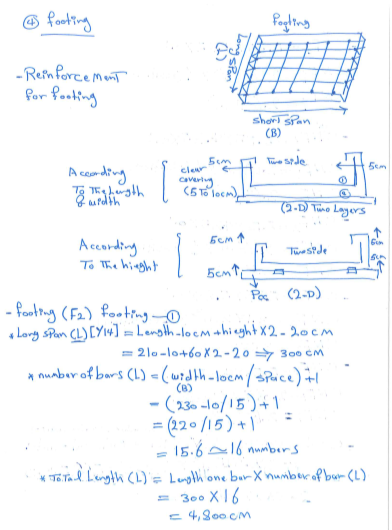 ④ footing
Footing
Long Span
(L)
- Reinforcement
for footing
short span
(B)
According
To The Length
& width
clear
covering
(5 To 10cm)
5cm
Two side
5cm
①
②
(2-D) Two Layers
According
To The hieght
5cm
5cm
Two side
5cm
5cm
Pcc (2-D)
- footing (F2) footing - ①
* Long span (L) [Y14] = Length-10cm+hieght X2 - 20cm
= 210-10+60X2-20 ⇒ 300cm
* number of bars (L) = (width-10cm/space)+1
(B)
= (230-10/15)+1
= (220/15)+1 =
= 15.6 ≃ 16 numbers
* ToTal Length (L) = Length one bar X number of bar (L)
= 300 X 16
= 4,800cm